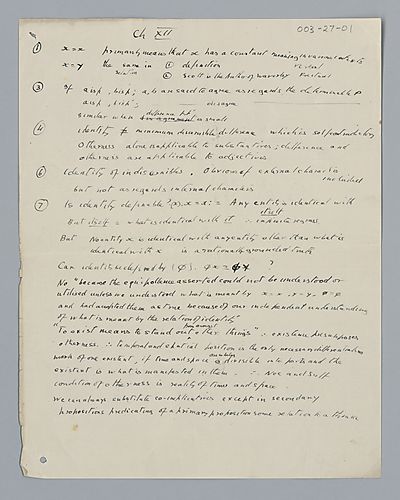 Ch XII
003-27-01
① x = x primarily means that x has a constant meaning in various contexts
x = y the same in ① definition
② Scott is the Author of Waverley
③ If a is p, b is p; a b are said to agree as regards the determinable P
a is p, b is p'; disagree
similar when difference p p' is small
④ identity ≠ minimum discernible difference which is self contradictory
Otherness alone is applicable to substantives; difference and
otherness are applicable to adjectives
⑥ Identity of indiscernibles. Obvious if external characters included
but not as regards internal characters
⑦ Is identity definable? x = x := Any entity is identical with itself
But itself = what is identical with it ∴ infinite regress
But No entity x is identical with any entity other than what is
identical with x is a rationally grounded truth
Can identity be defined by (φ). φx ≡ φy ?
No "because the equivalence asserted could not be understood or
utilised unless we understood what is meant by
and had accepted them as true because of our independent understanding
of what is meant by the relation of identity"
"To exist means to stand out from among other things" ∴ existence presupposes
otherness. ∴ temporal and spatial position is the only necessary differentiation
mark of one existent, if time and space are divisible into parts and the
existent is what is manifested in them ∴ Nec and suff
condition of otherness is reality of time and space
We can always substitute co-implicatives except in secondary
propositions predicating of a primary proposition some relation to a thinker